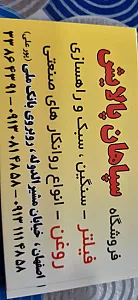 فروشگاه
سپاهان پالایش
فیلتر - سنگین ، سبک و راهسازی
روغن - انواع روانکار های صنعتی
اصفهان ، خیابان مشیرالدوله ، روبروی بانک ملی (پور علی)
۰۹۱۳۱۱۱۴۸۵۸ - ۰۹۱۳۰۸۱۴۸۵۸ -